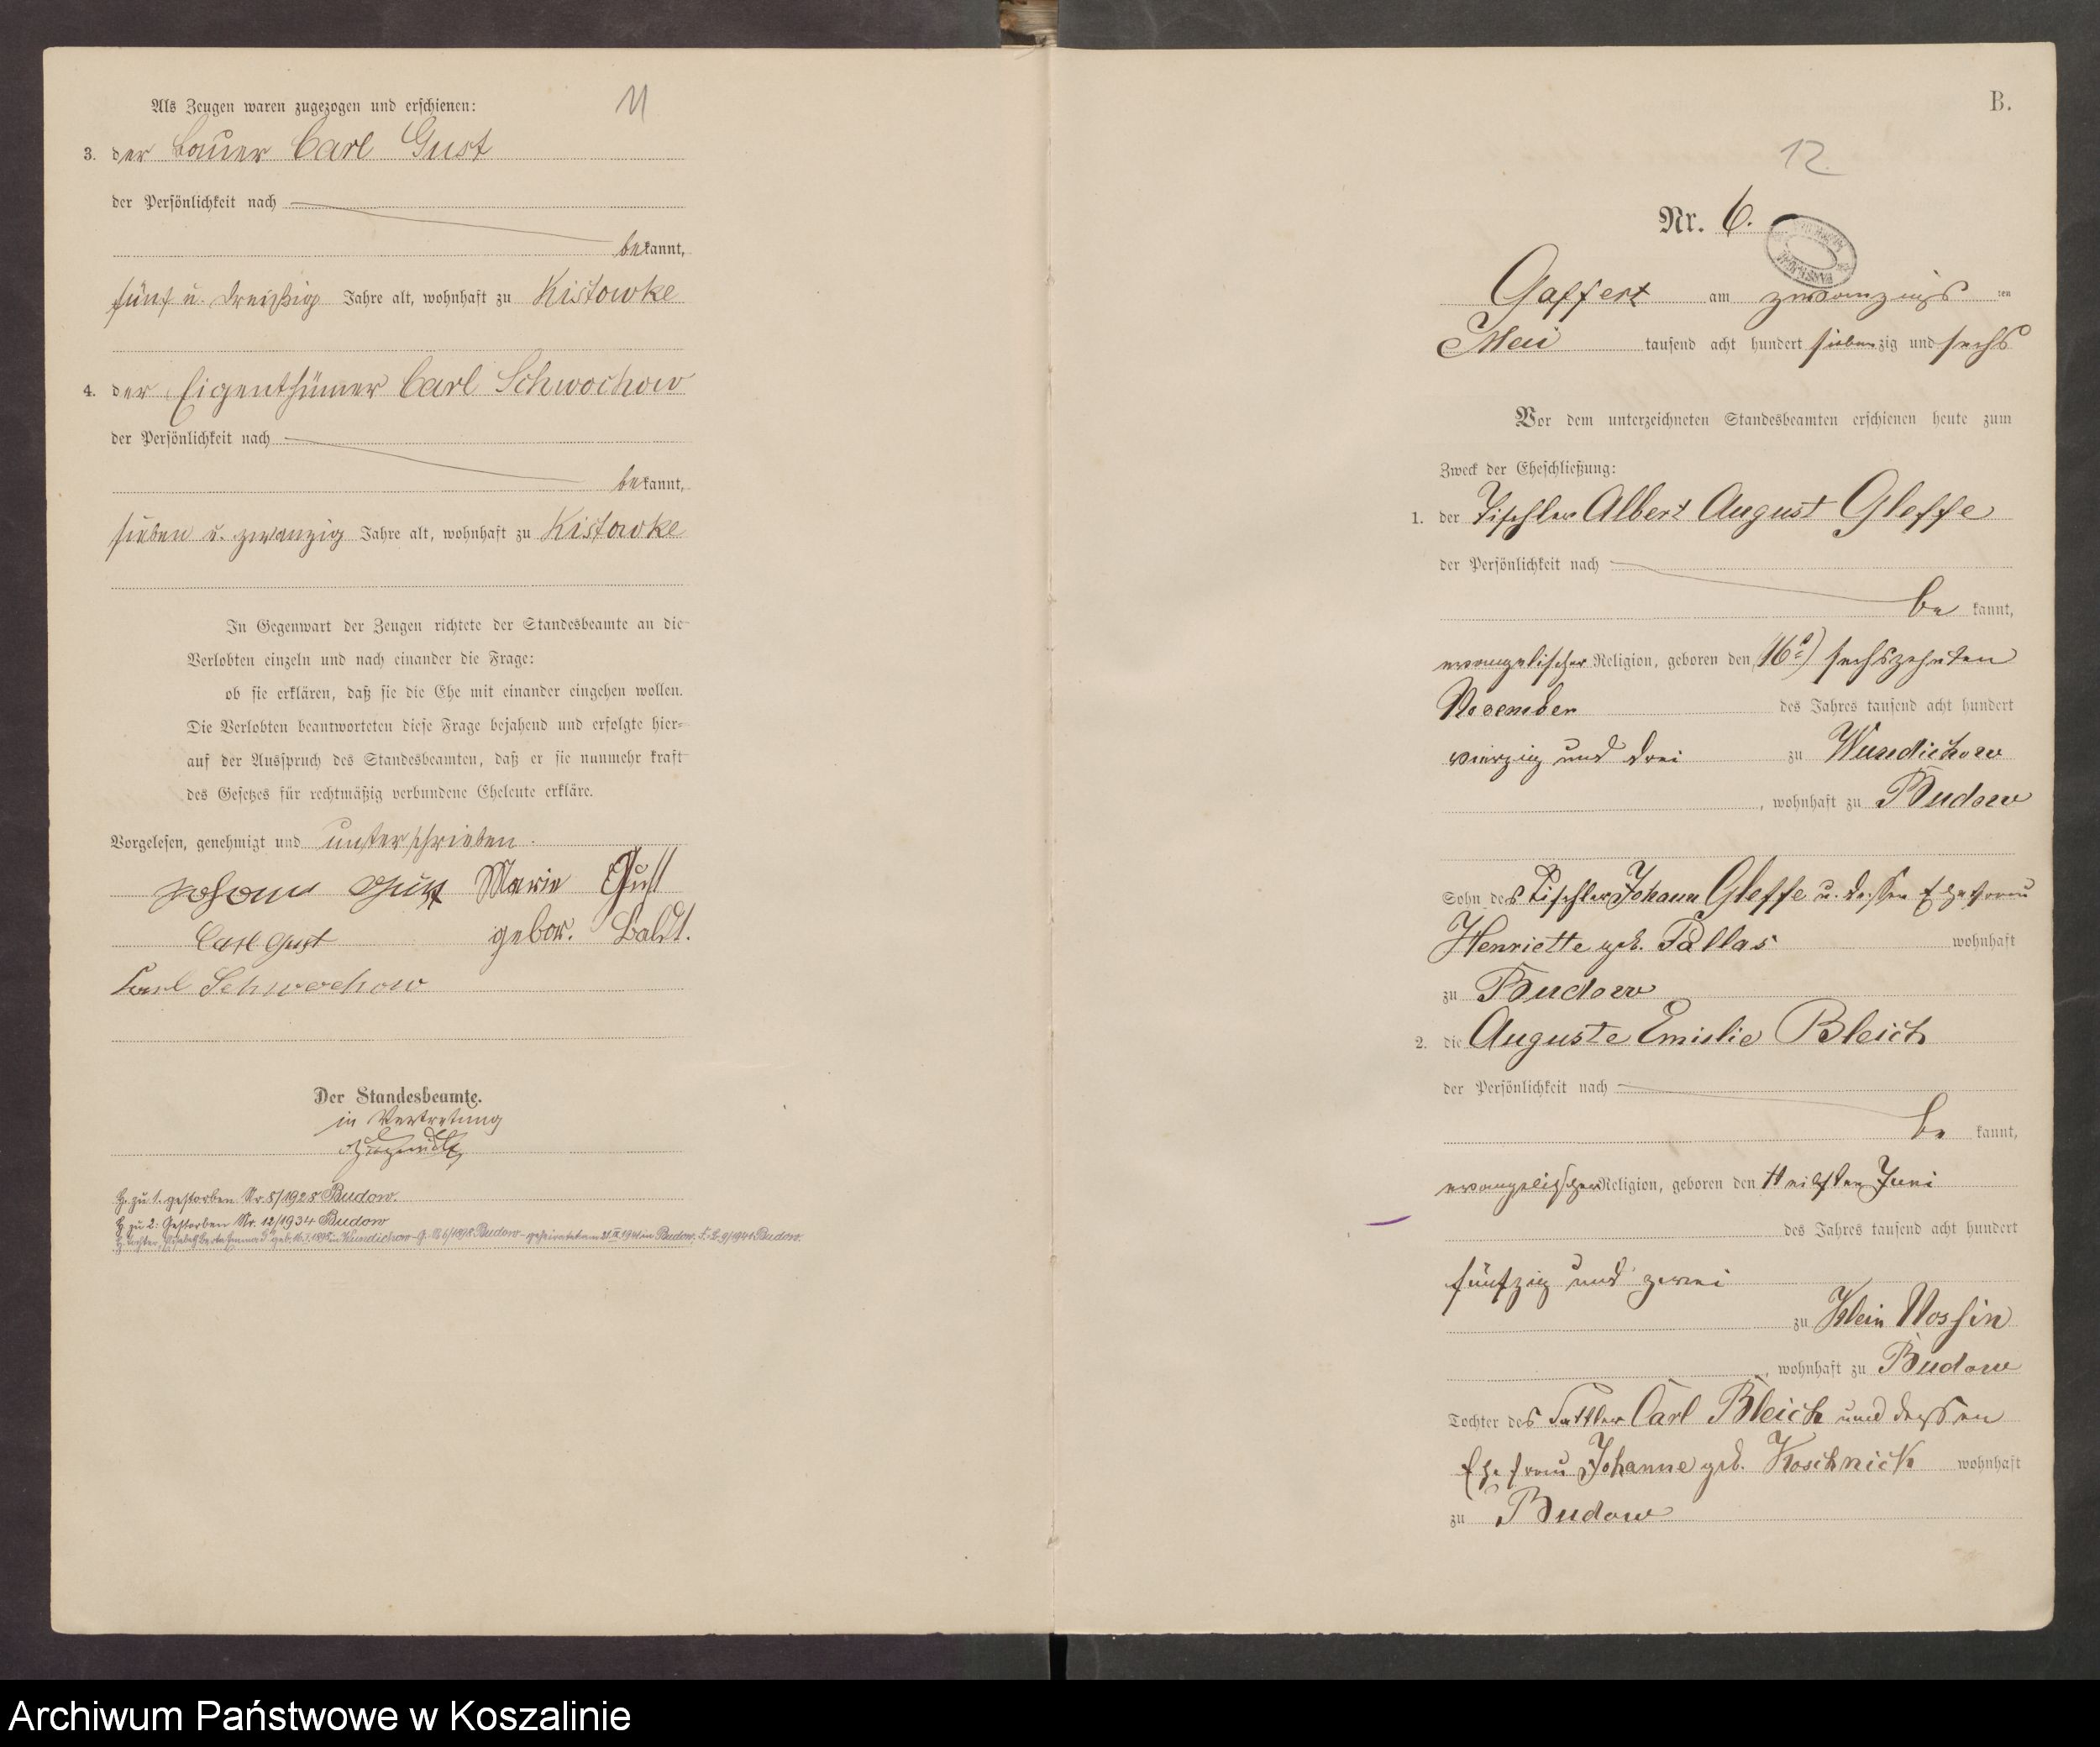 11
Als Zeugen waren zugezogen und erschienen:
3. der Bauer Carl Gust
der Persönlichkeit nach
bekannt,
fünf u. dreißig Jahre alt, wohnhaft zu Kistowke
4. der Eigenthümer Carl Schwochow
der Persönlichkeit nach
bekannt,
sieben u. zwanzig Jahre alt, wohnhaft zu Kistowke
In Gegenwart der Zeugen richtete der Standesbeamte an die
Verlobten einzeln und nach einander die Frage:
ob sie erklären, daß sie die Ehe mit einander eingehen wollen.
Die Verlobten beantworteten diese Frage bejahend und erfolgte hier=
auf der Ausspruch des Standesbeamten, daß er sie nunmehr kraft
des Gesetzes für rechtmäßig verbundene Eheleute erkläre.
Vorgelesen, genehmigt und unterschrieben.
Johann Gust Marie Gust
Carl Gust gebor. Baldt.
Carl Schwochow
Der Standesbeamte.
in Vertretung
H. zu 1. gestorben Nr. 8/1928 Budow.
H. zu 2: Gestorben Nr. 12/1934 Budow
in Wundichow - G. B. 6/1898 Budow - geheiratet am 1941 in Budow, F. B. 9/1941 Budow.
B.
12.
Nr. 6.
Gaffert am zwanzigsten
Mai tausend acht hundert siebenzig und sechs
Vor dem unterzeichneten Standesbeamten erschienen heute zum
Zweck der Eheschließung:
1. der Tischler Albert August Gleffe
der Persönlichkeit nach
be kannt,
evangelischer Religion, geboren den (16te) sechszehnten
November des Jahres tausend acht hundert
vierzig und drei zu Wundichow
, wohnhaft zu Budow
Sohn des Tischler Johann Gleffe u. dessen Ehefrau
Henriette geb. Pallas wohnhaft
zu Budow
2. die Auguste Emilie Bleich
der Persönlichkeit nach
be kannt,
evangelischer Religion, geboren den elften Juni
des Jahres tausend acht hundert
fünfzig und zwei
zu Klein Nossin
, wohnhaft zu Budow
Tochter des Sattler Carl Bleich und dessen
Ehefrau Johanne geb. Koschnick wohnhaft
zu Budow
Archiwum Państwowe w Koszalinie